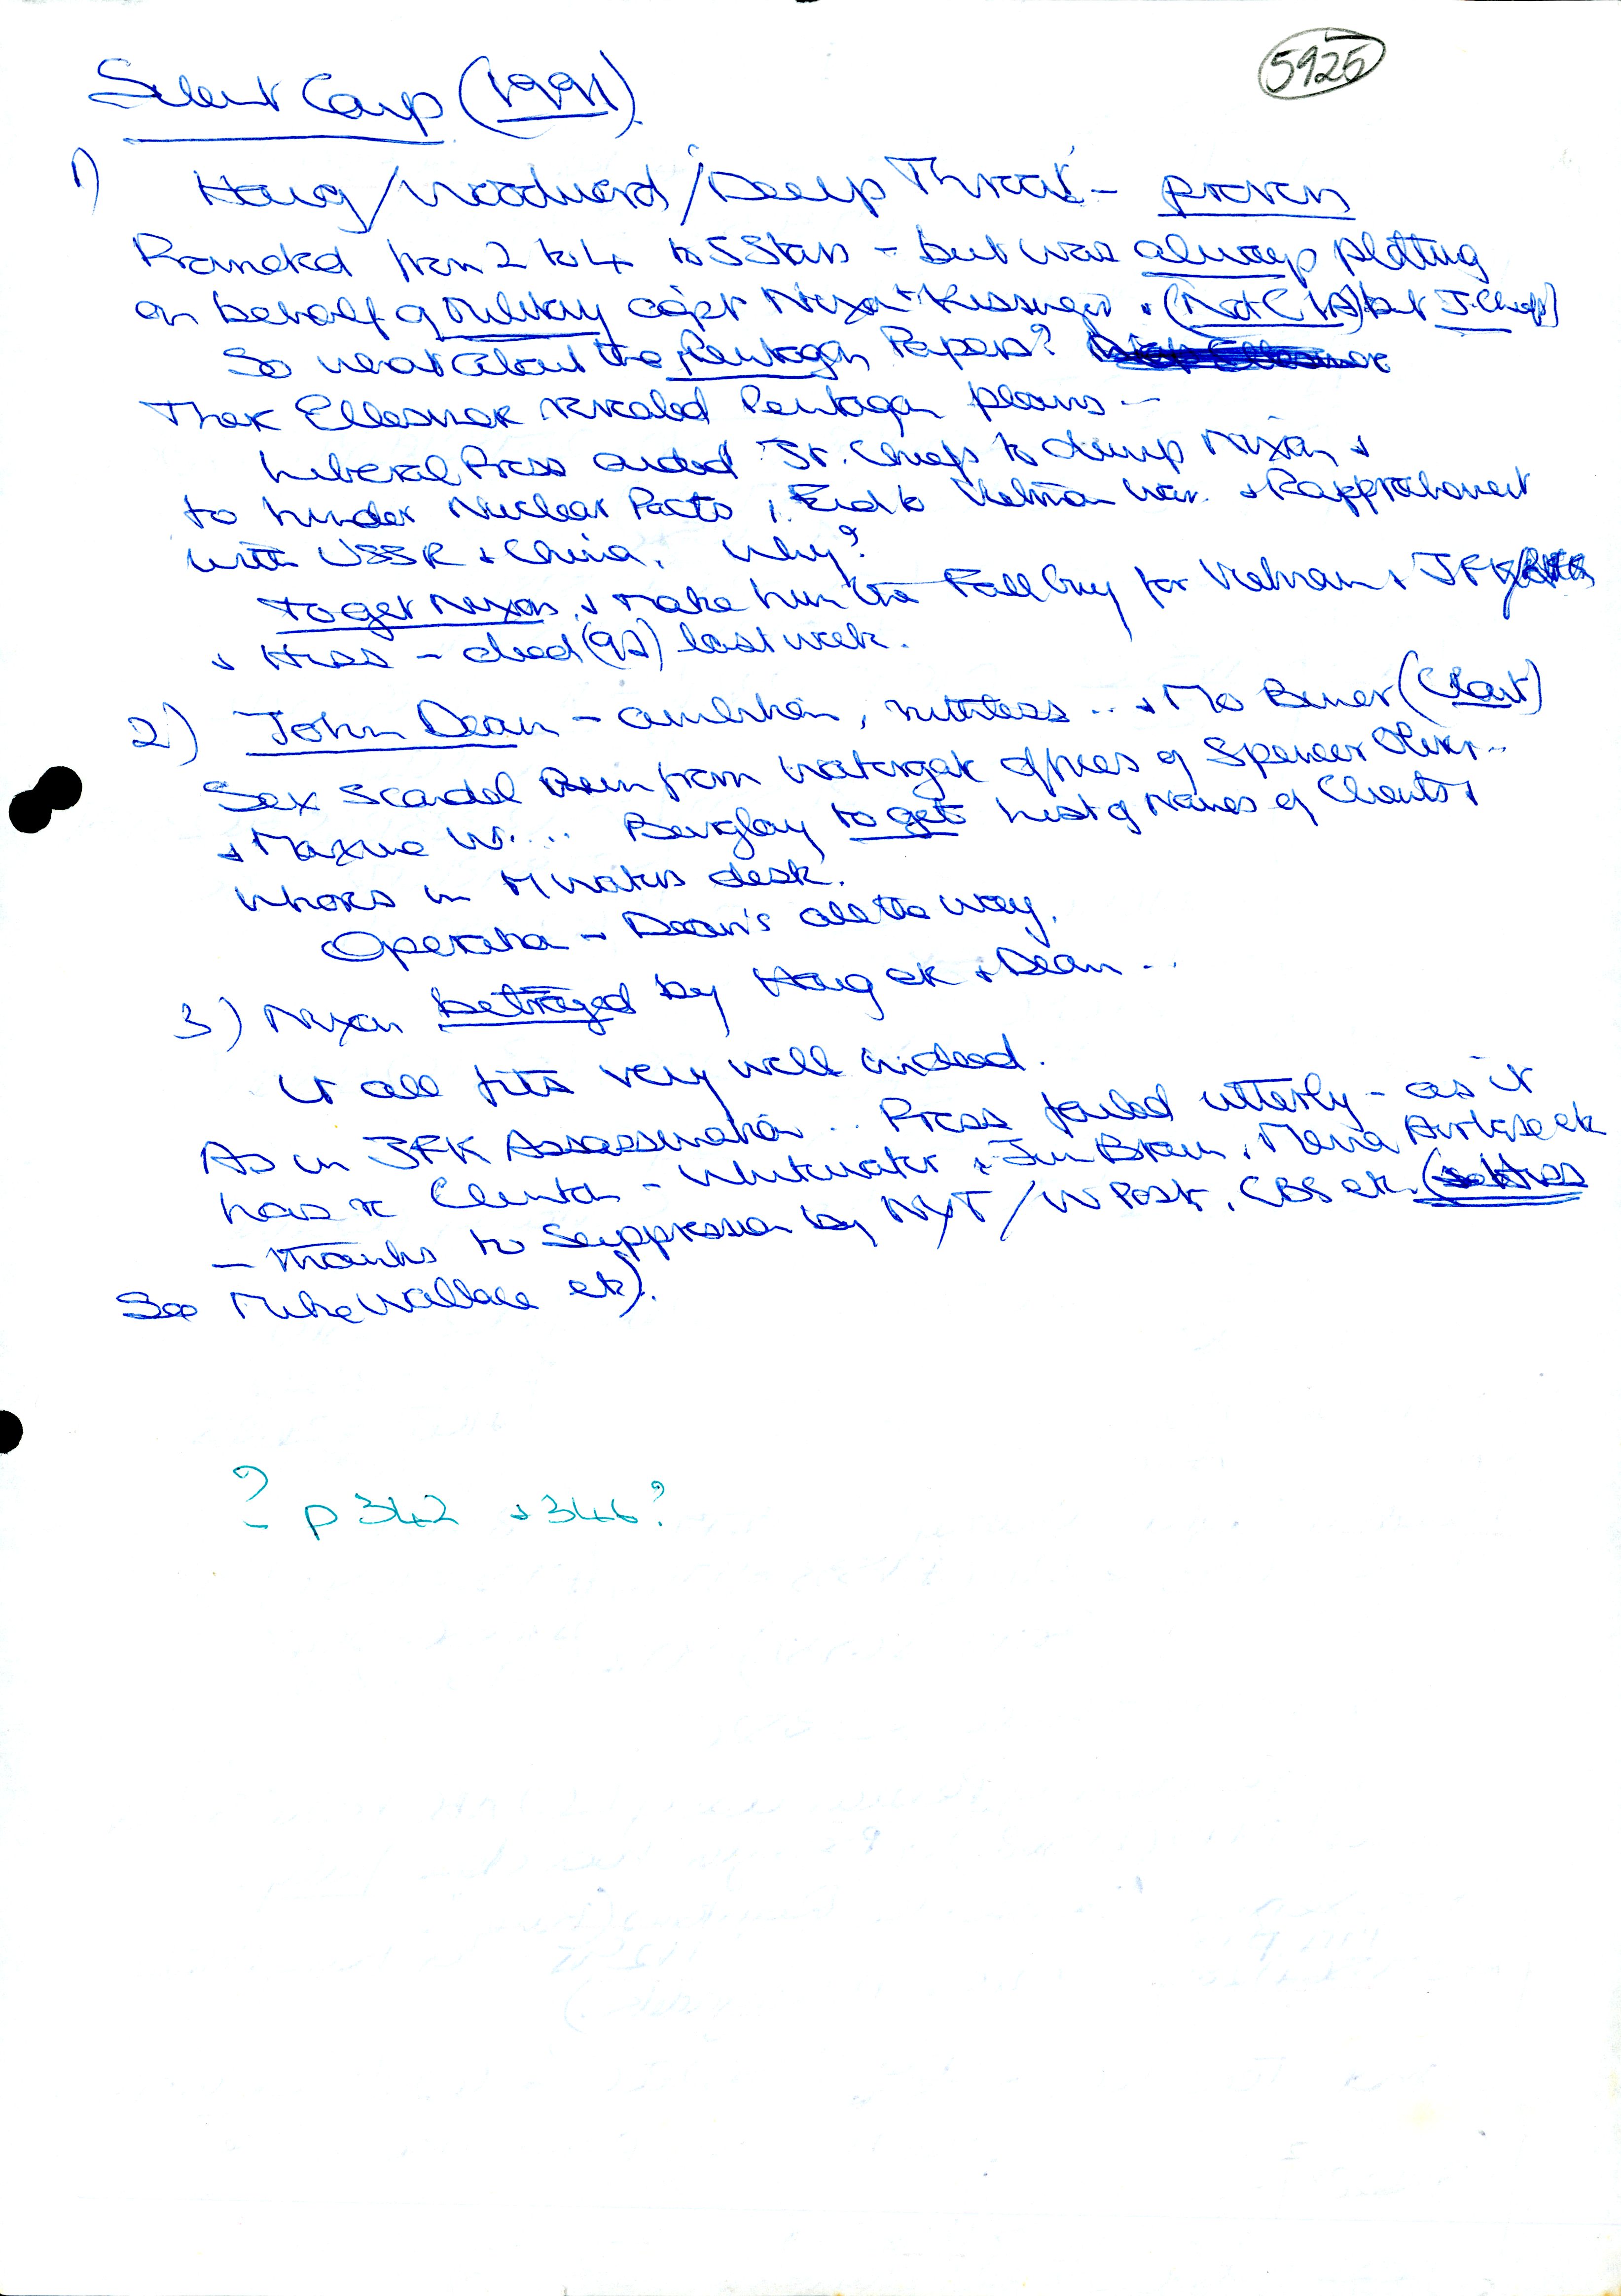 5925
Silent Coup (1991)
1) Haig/Woodward/'Deep Throat' - proven
Promoted from 2 to 4 to 5 Stars - but was always plotting
on behalf of Military agst Nixon + Kissinger. (Not CIA) but J. Chiefs
So what about the Pentagon Papers?
There Ellesner revealed Pentagon plans --
Liberal Press aided Jt. Chiefs to dump Nixon +
to hinder Nuclear Pacts, End to Vietnam War. + Rapprochement
with USSR + China. Why?
To get Nixon, + make him the Fall Guy for Vietnam + JFK
+ Hiss - died (92) last week.
2) John Dean - ambition, ruthless .. + Mo Biner (Clout)
Sex Scandal Run from Watergate offices of Spencer Oliver --
+ Maxine W. ... Burglary to get list of Names of Clients +
Whores in M Wells desk.
Operation - Dean's all the way.
3) Nixon betrayed by Haig etc + Dean ..
It all fits very well indeed.
As in JFK Assassination .. Press failed utterly - as it
has re Clinton - Whitewater + Jim Brown, Mena Airbase etc
- thanks to Suppression by NYT/W Post, CBS etc (
See Mike Wallace etc).
? p 342 + 346?